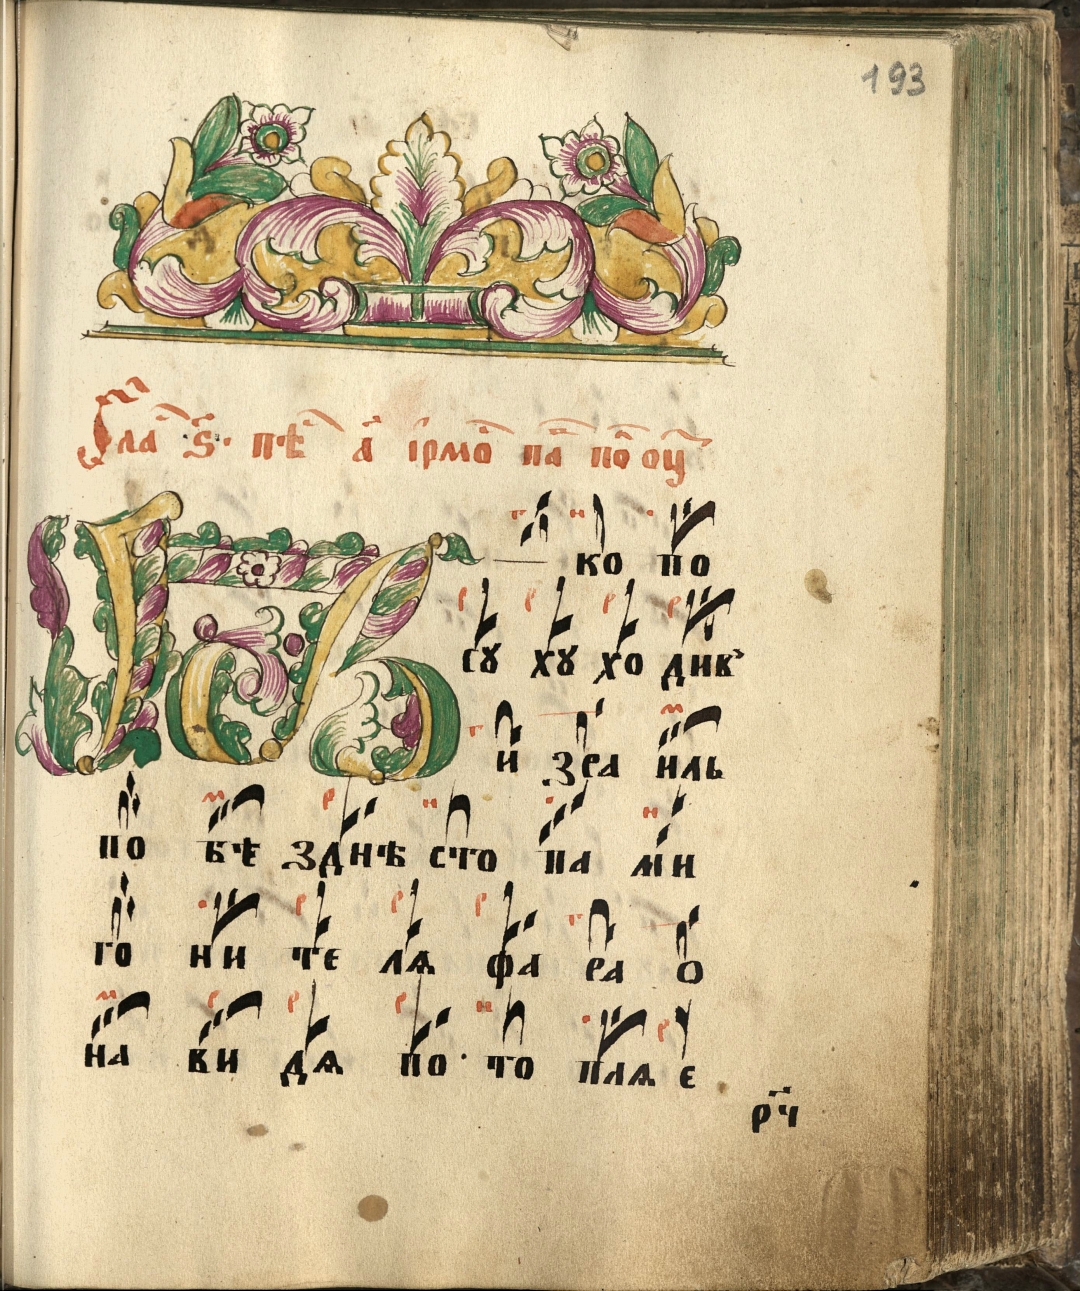 193
Гла ѕ· пѣ а ірмо па по оу
ко по
сꙋ хꙋ хо дивъ
и зра иль
по бѣ зднѣ сто па ми
го ни те лѧ фа ра о
на ви дѧ по то плѧ е
рч